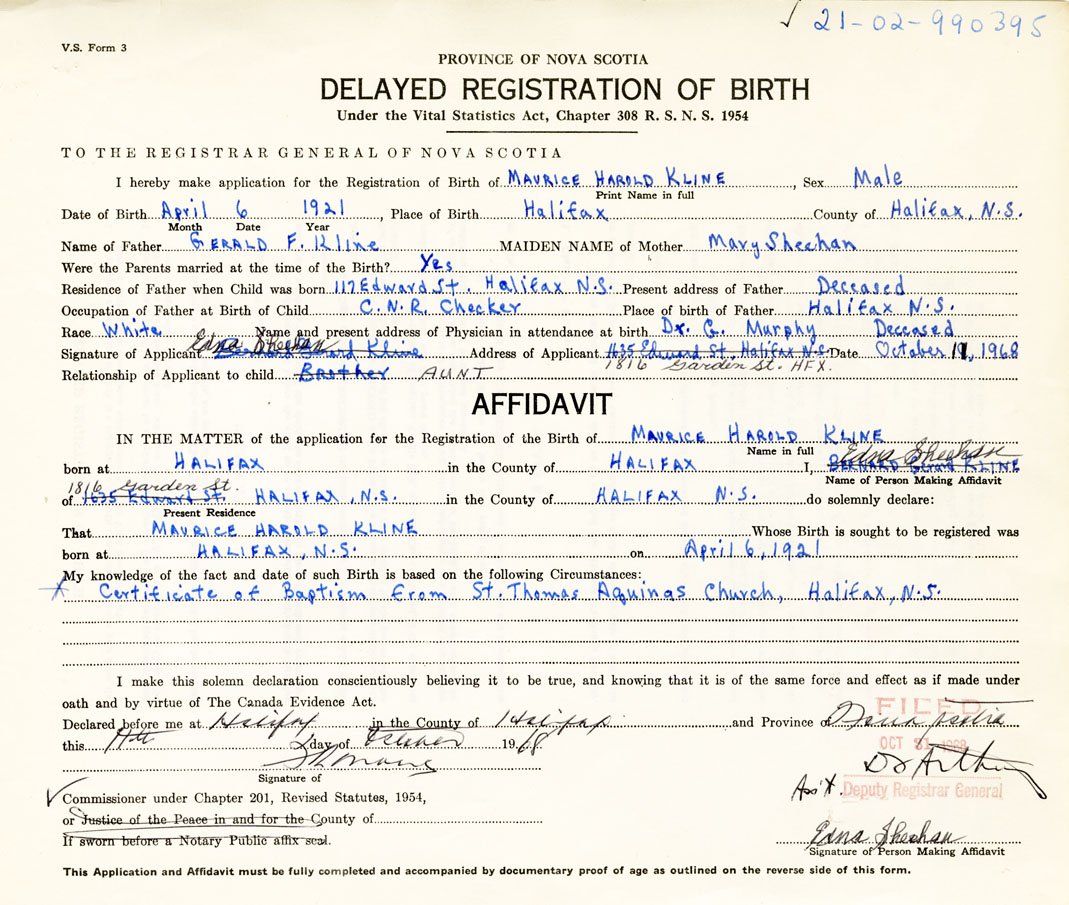 ✓ 21-02-990395
V.S. Form 3
PROVINCE OF NOVA SCOTIA
DELAYED REGISTRATION OF BIRTH
Under the Vital Statistics Act, Chapter 308 R. S. N. S. 1954
TO THE REGISTRAR GENERAL OF NOVA SCOTIA
I hereby make application for the Registration of Birth of MAURICE HAROLD KLINE, Sex Male
Print Name in full
Date of Birth April 6 1921, Place of Birth Halifax County of Halifax, N.S.
Month Date Year
Name of Father GERALD F. Kline MAIDEN NAME of Mother Mary Sheehan
Were the Parents married at the time of the Birth? Yes
Residence of Father when Child was born 117 Edward St. Halifax N.S. Present address of Father Deceased
Occupation of Father at Birth of Child C.N.R. Checker Place of birth of Father Halifax N.S.
Race White Name and present address of Physician in attendance at birth Dr. G. Murphy Deceased
Edna Sheehan
Signature of Applicant Bernard Gerard Kline Address of Applicant 1635 Edward St. Halifax N.S. Date October 11, 1968
1816 Garden St. HFX.
Relationship of Applicant to child Brother AUNT
AFFIDAVIT
IN THE MATTER of the application for the Registration of the Birth of MAURICE HAROLD KLINE
Name in full Edna Sheehan
born at HALIFAX in the County of HALIFAX I, BERNARD Gerard KLINE
Name of Person Making Affidavit
1816 Garden St.
of 1635 Edward St. HALIFAX, N.S. in the County of HALIFAX N.S. do solemnly declare:
Present Residence
That MAURICE HAROLD KLINE Whose Birth is sought to be registered was
born at HALIFAX, N.S. on April 6, 1921
My knowledge of the fact and date of such Birth is based on the following Circumstances:
Certificate of Baptism from St. Thomas Aquings Church, Halifax, N.S.
I make this solemn declaration conscientiously believing it to be true, and knowing that it is of the same force and effect as if made under
oath and by virtue of The Canada Evidence Act.
Declared before me at Halifax in the County of Halifax and Province of Nova Scotia
FILED
this 11th day of October 1968
OCT 31 1968
Signature of
Ass't. Deputy Registrar General
✓ Commissioner under Chapter 201, Revised Statutes, 1954,
or Justice of the Peace in and for the County of
If sworn before a Notary Public affix seal.
Edna Sheehan
Signature of Person Making Affidavit
This Application and Affidavit must be fully completed and accompanied by documentary proof of age as outlined on the reverse side of this form.